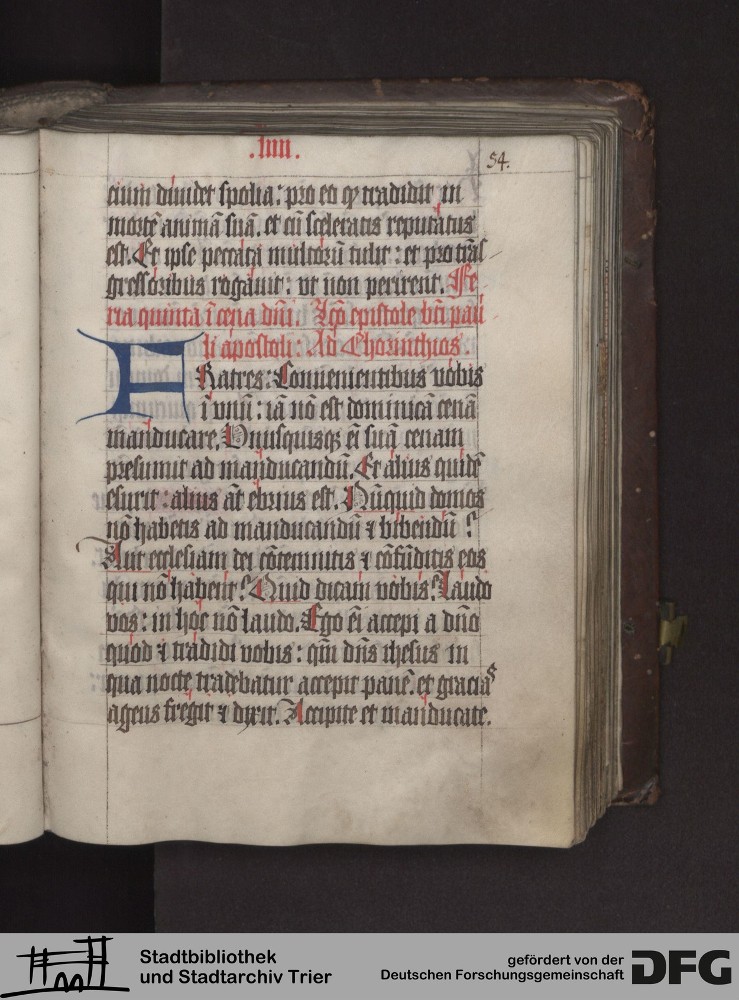 .liiii.
54.
cium diuidet spolia: pro eo qꝫ tradidit in
mortē animā suā. et cū sceleratis reputatus
est. Et ipse peccata multorū tulit: et pro trās
gressoribus rogauit: vt non perirent. Fe
ria quinta ī cena dn̄i. Lc̄o epistole bti̅ pau
li apostoli: Ad Chorinthios.
FRatres: Conuenientibus vobis
ī vnū: iā nō est dominicā cenā
manducare. Vnusquisqꝫ ei̅ suā cenam
presumit ad manducandū. Et alius quidē
esurit: alius āt ebrius est. Nūquid domos
nō habetis ad manducandū ⁊ bibendū?
Aut ecclesiam dei cōtemnitis ⁊ cōfūditis eos
qui nō habent? Quid dicam vobis? Laudo
vos: in hoc nō laudo. Ego ei̅ accepi a dn̄o
quod ⁊ tradidi vobis: qm̄ dn̄s ihesus in
qua nocte tradebatur accepit panē. et gracias
agens fregit ⁊ dixit. Accipite et manducate.
Stadtbibliothek
und Stadtarchiv Trier
gefördert von der
Deutschen Forschungsgemeinschaft
DFG